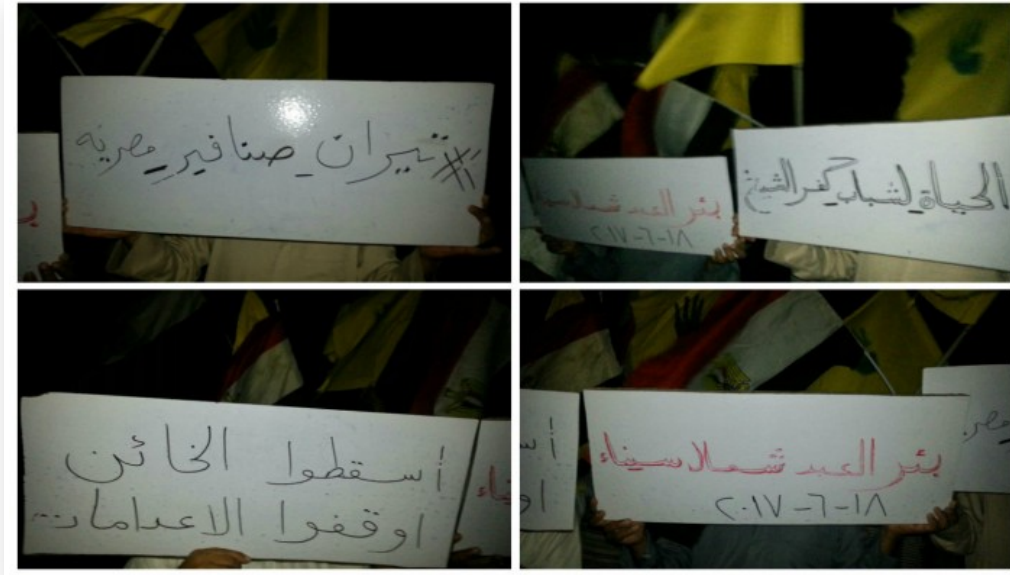 #تيران_صنافير_مصريه
الحياة لشباب كفر الشيخ
بئر العبد شمال سيناء
٢٠١٧-٦-١٨
أسقطوا الخائن
اوقفوا الاعدامات..
بئر العبد شمال سيناء
٢٠١٧-٦-١٨